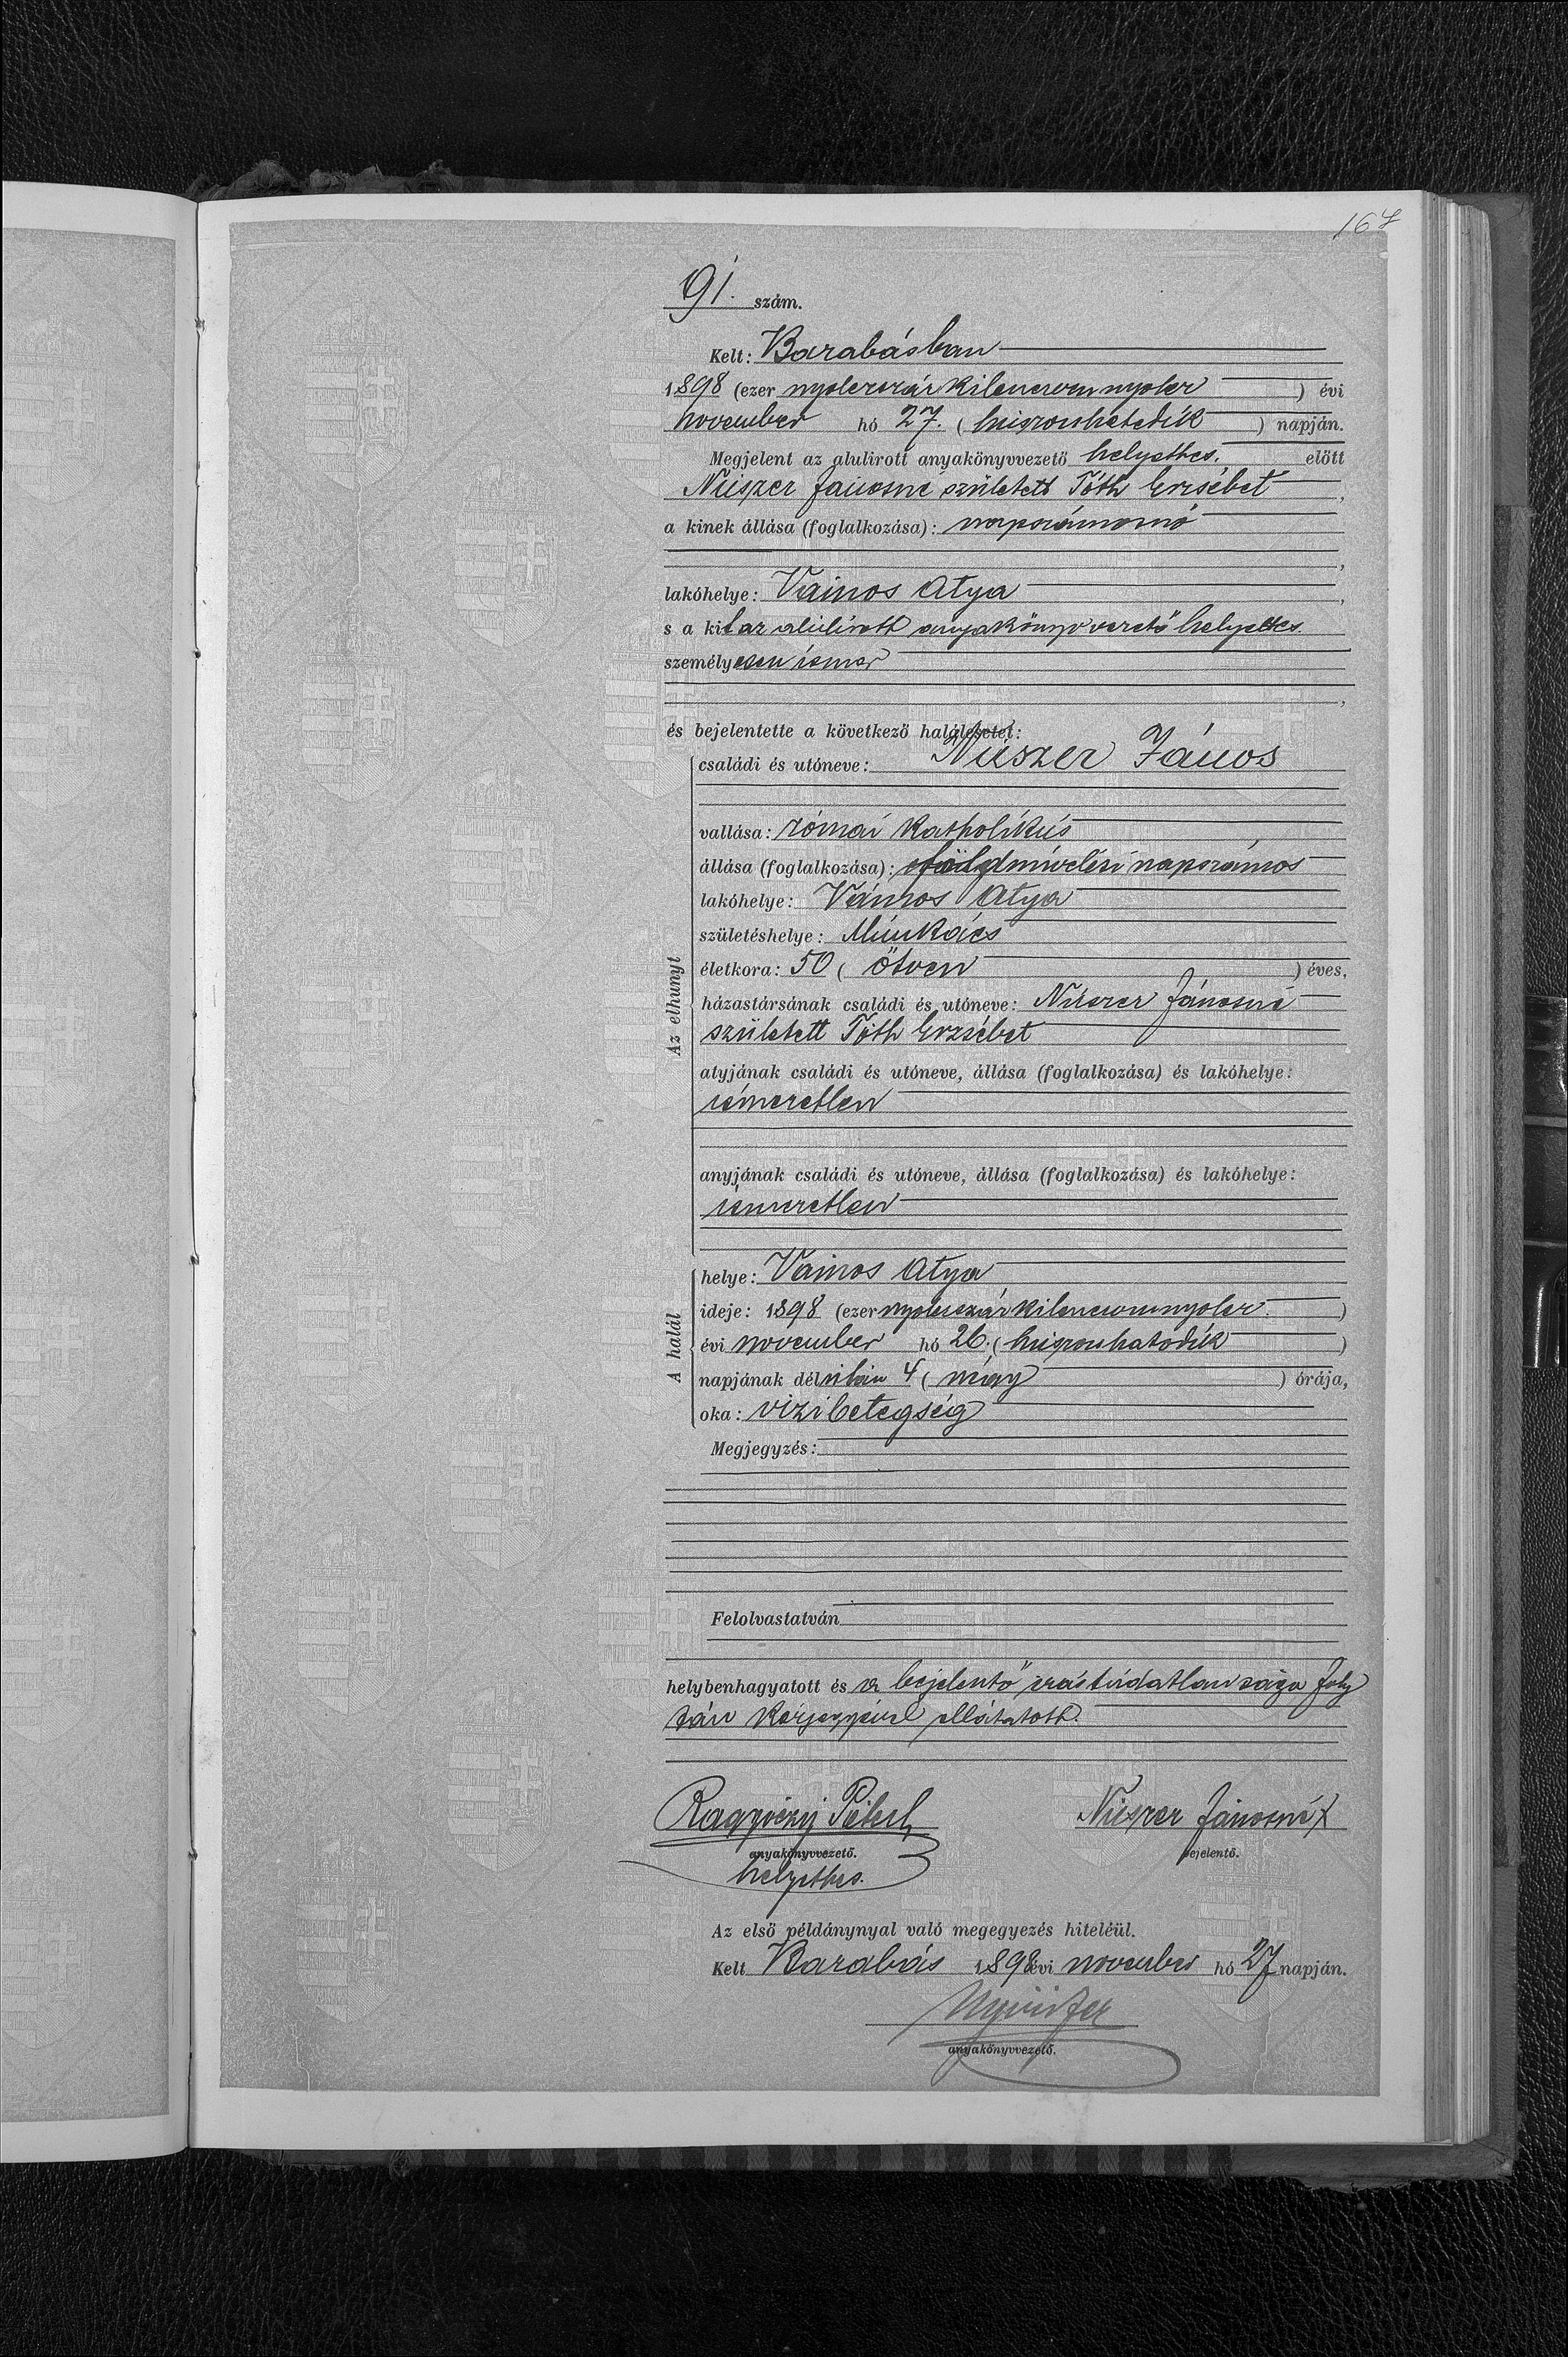 167
91. szám.
Kelt: Barabásban
1898 (ezer nyolczszáz kilenczven nyolcz) évi
november hó 27. (huszonhetedik) napján.
Megjelent az alulirott anyakönyvvezető helyettes. előtt
Núszer Jánosné született Tóth Erzsébet,
a kinek állása (foglalkozása): napszámosnő
,
lakóhelye: Vámos Atya,
s a kit az alúlirott anyakönyvvezető helyettes
személyesen ismer
,
és bejelentette a következő halálesetet:
Az elhunyt
családi és utóneve: Núszer János
vallása: római katholikús
állása (foglalkozása): földmívelési napszámos
lakóhelye: Vámos Atya
születéshelye: Múnkács
életkora: 50 (ötven) éves,
házastársának családi és utóneve: Núszer Jánosné
született Tóth Erzsébet
atyjának családi és utóneve, állása (foglalkozása) és lakóhelye:
ismeretlen
anyjának családi és utóneve, állása (foglalkozása) és lakóhelye:
ismeretlen
A halál
helye: Vámos Atya
ideje: 1898 (ezer nyolczszáz kilenczven nyolcz.)
évi november hó 26. (huszonhatodik)
napjának délután 4 (négy) órája,
oka: vizibetegség
Megjegyzés:
Felolvastatván
helybenhagyatott és a bejelentő irástúdatlansága foly
tán kézjegyével ellátatott.
Péter Núszer Jánosné X
anyakönyvvezető. bejelentő.
helyettes.
Az első példánynyal való megegyezés hiteléül.
Kelt Barabás 1898 évi november hó 27 napján.
anyakönyvvezető.